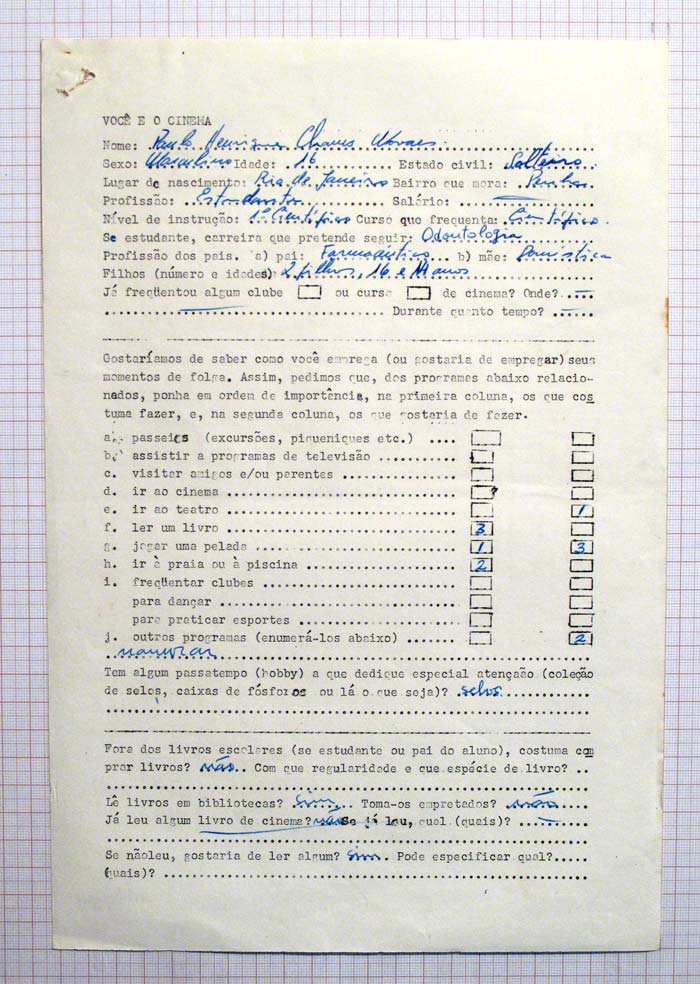 VOCÊ E O CINEMA
Nome: Paulo Henrique Chaves Moraes
Sexo: Masculino Idade: 16 Estado civil: Solteiro
Lugar de nascimento: Rio de Janeiro Bairro que mora: Penha
Profissão: Estudante Salário:
Nível de instrução: 1º Científico Curso que frequenta: Científico
Se estudante, carreira que pretende seguir: Odontologia
Profissão dos pais. a) pai: Farmacêutico b) mãe: Doméstica
Filhos (número e idades) 2 filhos, 16 e 11 anos
Já freqüentou algum clube ou curso de cinema? Onde?
Durante quanto tempo?
Gostaríamos de saber como você emprega (ou gostaria de empregar) seus
momentos de folga. Assim, pedimos que, dos programas abaixo relacio-
nados, ponha em ordem de importância, na primeira coluna, os que cos
tuma fazer, e, na segunda coluna, os que gostaria de fazer.
a. passeios (excursões, piqueniques etc.) ....
b. assistir a programas de televisão
c. visitar amigos e/ou parentes
d. ir ao cinema
e. ir ao teatro 1
f. ler um livro 3
g. jogar uma pelada 1 3
h. ir à praia ou à piscina 2
i. freqüentar clubes
para dançar
para praticar esportes
j. outros programas (enumerá-los abaixo) ....... 2
namorar
Tem algum passatempo (hobby) a que dedique especial atençaão (coleção
de selos, caixas de fósforos ou lá o que seja)? selos
Fora dos livros escolares (se estudante ou pai do aluno), costuma com
prar livros? não.. Com que regularidade e que espécie de livro? ..
Lê livros em bibliotecas? Sim... Toma-os empretados? não
Já leu algum livro de cinema? não Se já leu, qual (quais)?
Se nãoleu, gostaria de ler algum? Sim. Pode especificar qual?.....
(quais)?